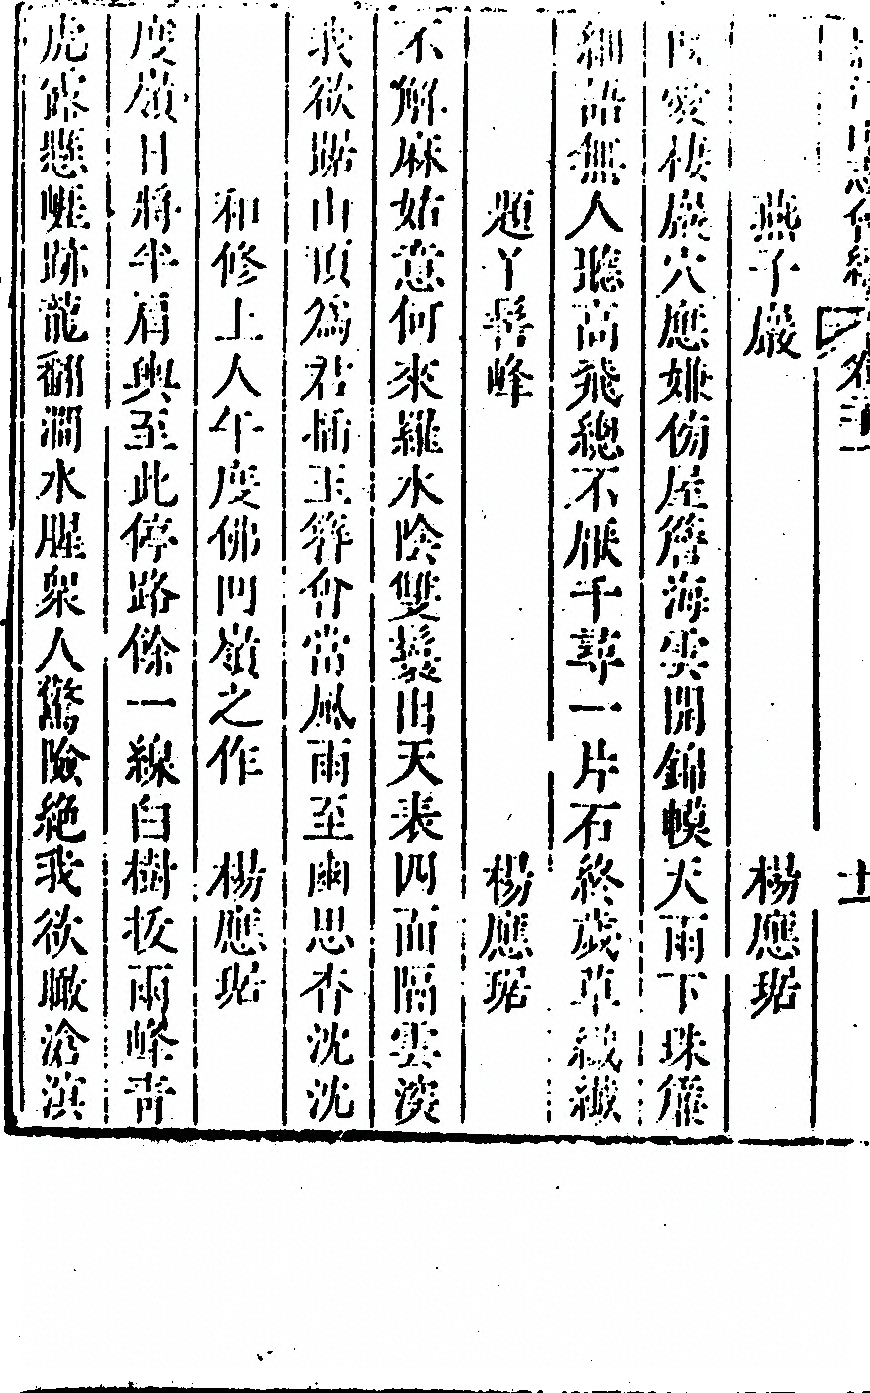 燕子巖 楊應琚
愛棲巖穴應嫌傍屋簷海雲開錦幙天雨下珠簾
細語無人聽高飛總不厭千尋一片石終歲草纖纖
題丫髻峰 楊應琚
不解麻姑意何來羅水陰雙鬟出天表四面隔雲深
我欲踞山頂為君插玉簪會當風雨至幽思杳沈沈
和修上人午度佛冏嶺之作 楊應琚
度嶺日將半肩輿至此停路餘一線白樹拔兩峰青
虎篩懸蹤跡龍翻澗水腥眾人驚險絕我欲瞰滄溟